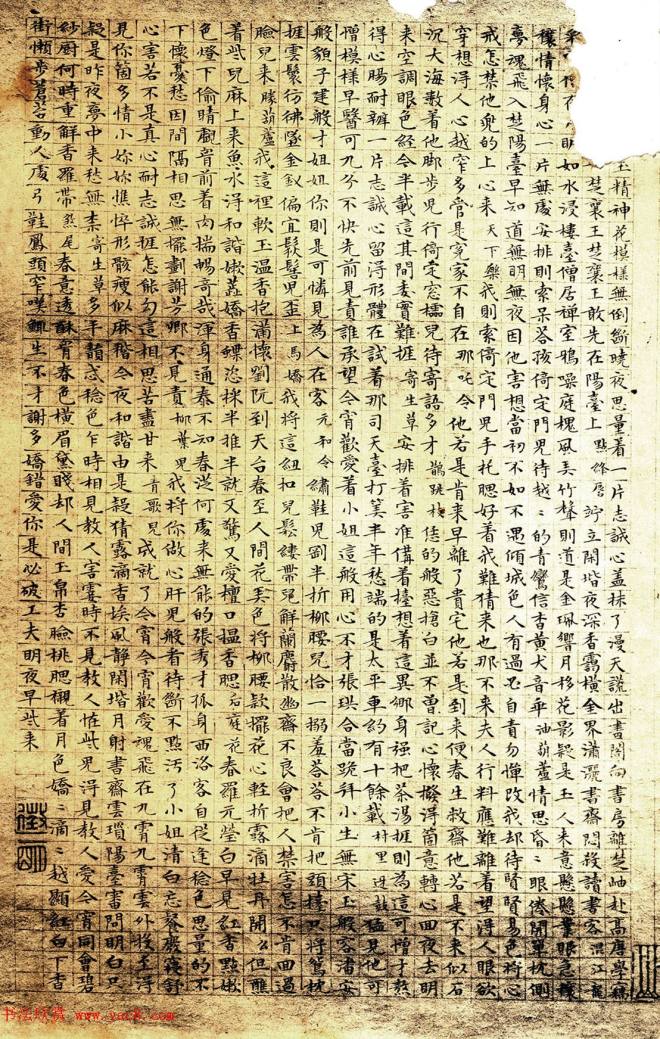 玉精神花模樣無倒斷曉夜思量着一片志誠心盖抹了漫天謊出畫閣向書房離楚岫赴高唐學竊
楚襄王楚襄王敢先在陽臺上點絳唇竚立閑堦夜深香靄橫金界瀟灑書齋悶殺讀書客混江龍
明如水浸樓臺僧居禪室鴉噪庭槐風弄竹聲則道是金珮響月移花影疑是玉人來意懸懸業眼急攘
攘情懷身心一片無處安排則索呆荅孩倚定門兒待越〻的青鸞信杳黃犬音乖油葫蘆情思昏〻眼倦開單枕側
夢魂飛入楚陽臺早知道無明無夜因他害想當初不如不遇傾城色人有過必自責勿憚改我却待賢賢易色將心
戒怎禁他兜的上心來天下樂我則索倚定門兒手托腮好着我難猜來也那不來夫人行料應難離着望得人眼欲
穿想得人心越窄多管是寃家不自在那吒令他若是肯來早離了貴宅他若是到來便春生敝齋他若是不來似石
沉大海數着他脚步兒行倚定窓櫺兒待寄語多才鵲踏枝恁的般惡搶白並不曾記心懷撥得箇意轉心回夜去明
來空調眼色經今半載這其間委實難捱寄生草安排着害准備着擡想着這異鄉身强把茶湯捱則為這可憎才熬
得心腸耐辦一片志誠心留得形體在試着那司天臺打筭半年愁端的是太平車約有十餘載村里迓鼓猛見他可
憎模樣早醫可九分不快先前見責誰承望今宵歡愛着小姐這般用心不才張珙合當跪拜小生無宋玉般容潘安
般貌子建般才姐姐你則是可憐見為人在客元和令繡鞋兒剛半折柳腰兒恰一搦羞荅荅不肯把頭擡只將鴛枕
捱雲鬟彷彿墜金釵偏宜鬏髻兒歪上馬嬌我將這鈕扣兒鬆縷帶兒解蘭麝散幽齋不良會把人禁害怎不肯回過
臉兒來勝葫蘆我這裡軟玉温香抱滿懷劉阮到天台春至人間花弄色將柳腰款擺花心輕折露滴牡丹開么但蘸
着些兒麻上來魚水得和諧嫩蕊嬌香蝶恣採半推半就又驚又愛檀口揾香腮后庭花春羅元瑩白早見紅香點嫩
色燈下偷睛覷胷前着肉揣暢奇哉渾身通泰不知春從何處來無能的張秀才孤身西洛客自從逢稔色思量的不
下懷憂愁因間隔相思無擺劃謝芳卿不見責柳葉兒我將你做心肝兒般看待斷不點汚了小姐清白忘餐廢寢舒
心害若不是真心耐志誠捱怎能勾這相思苦盡甘來青歌兒成就了今宵今宵歡愛魂飛在九霄九霄雲外投至得
見你箇多情小妳妳憔悴形骸瘦似麻稭今夜和諧由是疑猜露滴香埃風静閑堦月射書齋雲瑣陽臺審問明白只
疑是昨夜夢中來愁無柰寄生草多丰韻忒稔色乍時相見教人害霎時不見教人怪些兒得見教人愛今宵同會碧
紗厨何時重解香羅帶煞尾春意透酥胷春色橫眉黛賤却人間玉帛杏臉桃腮襯着月色嬌〻滴〻越顯紅白下香
街懶步蒼苔動人處弓鞋鳳頭窄嘆鯫生不才謝多嬌錯愛你是必破工夫明夜早些來
徵明
书法欣赏 www.yac8.com